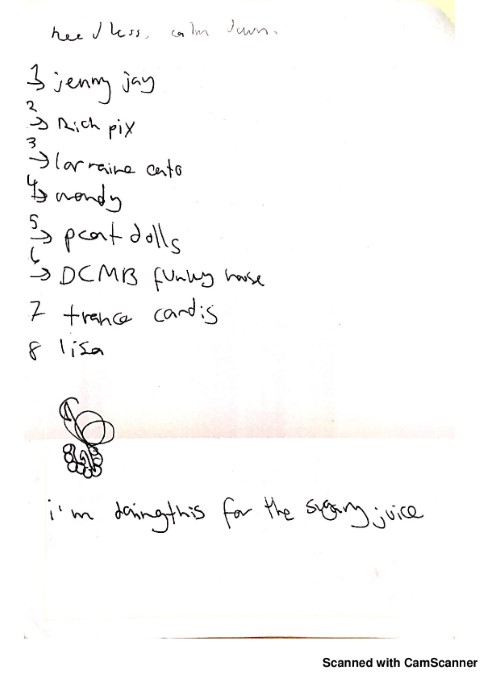 need less, calm down.
1 → jenny jay
2 → Rich pix
3 → lorraine
4 → wendy
5 → pcat dolls
6 → DCMB funky house
7 trance candis
8 lisa
i'm doing this for the sugary juice
Scanned with CamScanner